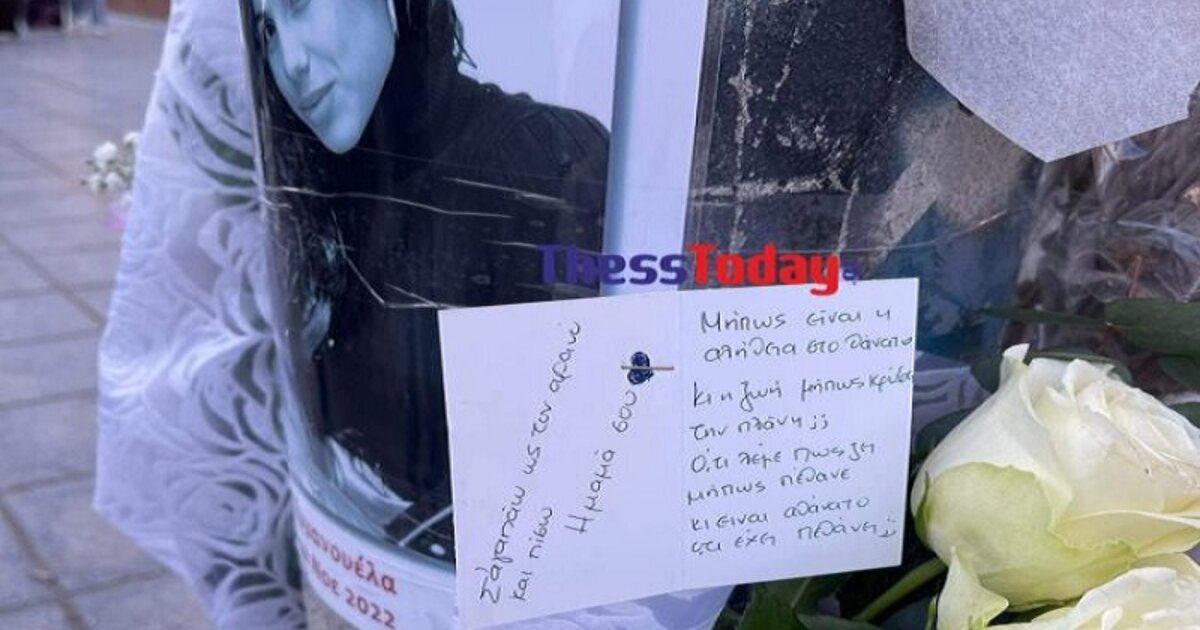 ThessToday.gr
Σ'αγαπάω ως τον ουρανό
και πίσω
Η μαμά σου
Μήπως είναι η
αλήθεια στο θάνατο
κι η ζωή μήπως κρύβει
την πλάνη ;;
Ό,τι λέμε πως ζη
μήπως πέθανε
κι είναι αθάνατο
ότι έχει πεθάνει ;;
νουέλα
Νοε 2022